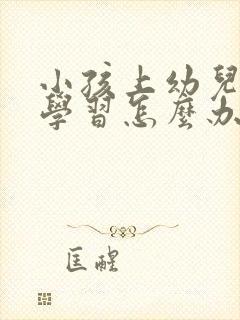 小孩上幼兒
學習怎麼办
匡醒